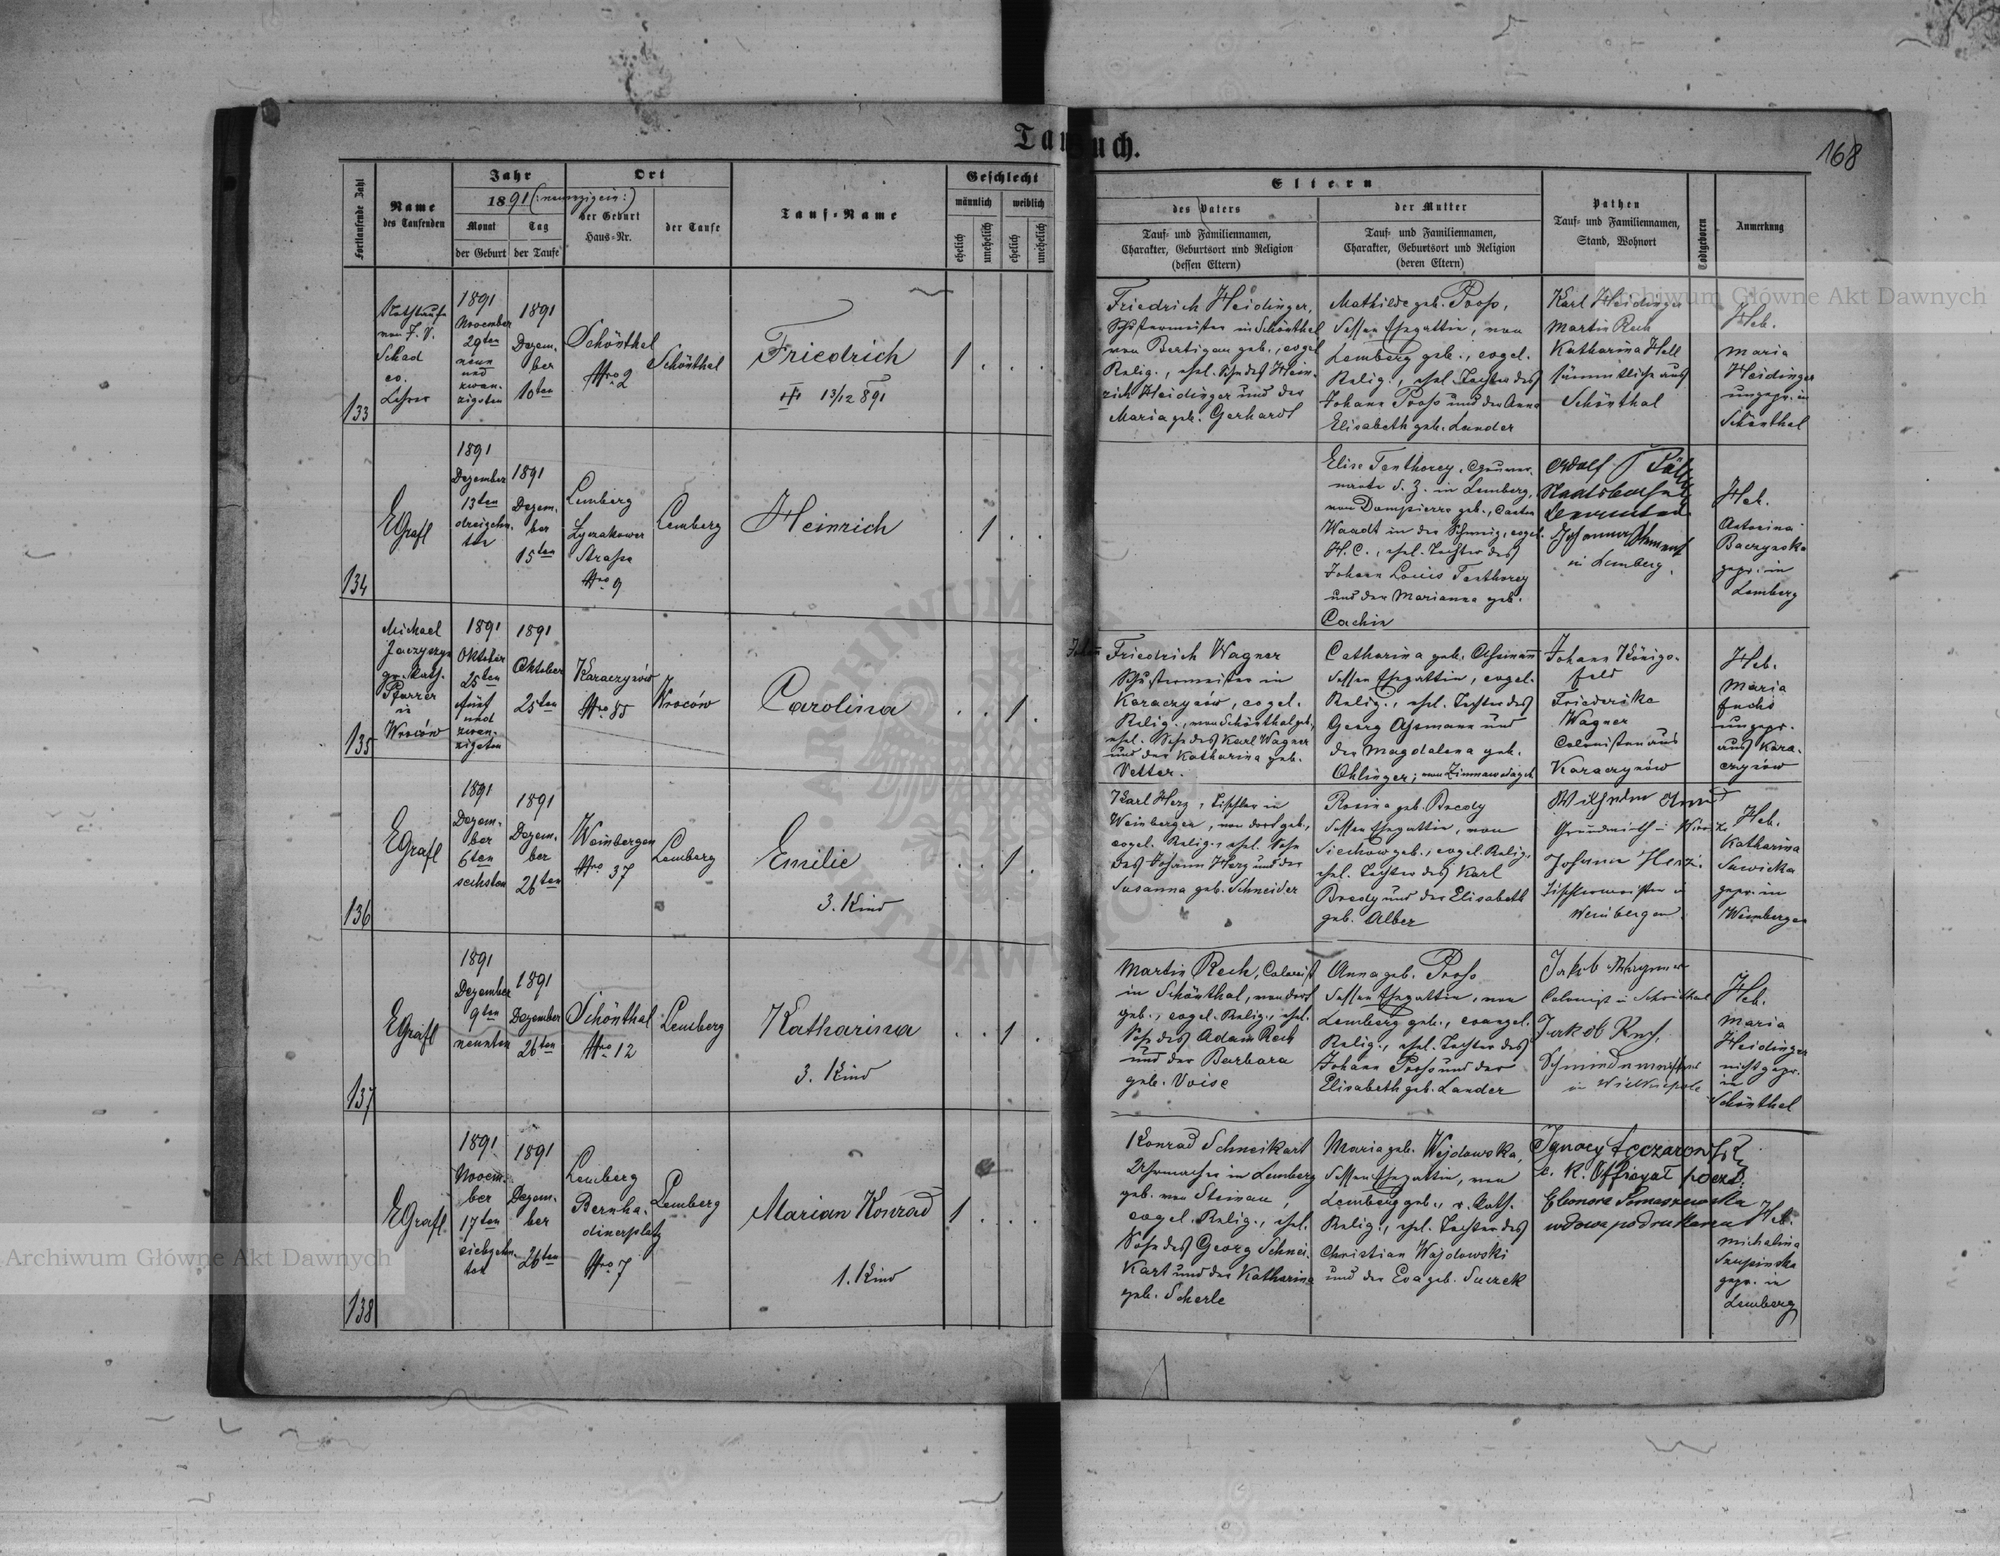 Taufbuch.
168
Fortlaufende Zahl
Name
des Taufenden
Jahr
1891 (: neunzigein :)
Monat
der Geburt
Tag
der Taufe
Ort
der Geburt
Haus-Nr.
der Taufe
Tauf-Name
Geschlecht
männlich
weiblich
ehelich
unehelich
ehelich
unehelich
Eltern
des Vaters
Tauf- und Familiennamen,
Charakter, Geburtsort und Religion
(dessen Eltern)
der Mutter
Tauf- und Familiennamen,
Charakter, Geburtsort und Religion
(deren Eltern)
Pathen
Tauf- und Familiennamen,
Stand, Wohnort
Todtgeboren
Anmerkung
133
Nothtaufe
von F. V.
Schad
ev.
Lehrer
1891
November
29ten
neun
und
zwan-
zigsten
1891
Dezem-
ber
10ten
Schönthal
Nro 2
Schönthal
Friedrich
13/12 891
1
Friedrich Heidinger,
Schustermeister in Schönthal
geb., evgel.
Relig., ehel. Sohn des Hein-
rich Heidinger und der
Maria geb. Gerhardt
Mathilde geb. Pross,
dessen Ehegattin, von
Lemberg geb., evgel.
Relig., ehel. Tochter des
Johann Pross und der Anna
Elisabeth geb. Lander
Karl Heidinger
Martin Rech
Katharina Hell
sämmtliche aus
Schönthal
Heb.
Maria
Heidinger
ungepr. in
Schönthal
134
EGrafl
1891
Dezember
13ten
dreizehn-
ter
1891
Dezem-
ber
15ten
Lemberg
Lyczakower
Strasse
Nro 9
Lemberg
Heinrich
1
Elise Tenthorey, Gouver-
nante d. Z. in Lemberg,
von Dompierre geb., Canton
Waadt in der Schweiz, evgel.
H. C., ehel. Tochter des
Johann Louis Tenthorey
und der Marianna geb.
Cachin
Adolf
Johanna
in Lemberg.
Heb.
Antonina
Baczynska
gepr. in
Lemberg
135
Michael
gr. kath.
Pfarrer
in
Wroców
1891
Oktober
25ten
fünf
und
zwan-
zigsten
1891
Oktober
25ten
Karaczynów
Nro 85
Wroców
Carolina
1
Johann Friedrich Wagner
Schustermeister in
Karaczynów, evgel.
Relig., von Schönthal geb.,
ehel. Sohn des Karl Wagner
und der Katharina geb.
Vetter.
Catharina geb. Assmann
dessen Ehegattin, evgel.
Relig., ehel. Tochter des
Georg Assmann und
der Magdalena geb.
Ohlinger; von Zimnawoda geb.
Johann Königs-
feld
Friederike
Wagner
Colonisten aus
Karaczynów
Heb.
Maria
Fuchs
ungepr.
aus Kara-
czynów
136
EGrafl
1891
Dezem-
ber
6ten
sechsten
1891
Dezem-
ber
26ten
Weinbergen
Nro 37
Lemberg
Emilie
3. Kind
1
Karl Herz, Tischler in
Weinbergen, von dort geb.,
evgel. Relig., ehel. Sohn
des Johann Herz und der
Susanna geb. Schneider
Rosina geb. Bredy
dessen Ehegattin, von
Siechow geb., evgel. Relig.,
ehel. Tochter des Karl
Bredy und der Elisabeth
geb. Alber
Wilhelm
Grundwirth
Johann Herz
Tischlermeister in
Weinbergen
Heb.
Katharina
Sawicka
gepr. in
Weinbergen
137
EGrafl
1891
Dezember
9ten
neunten
1891
Dezember
26ten
Schönthal
Nro 12
Lemberg
Katharina
3. Kind
1
Martin Rech, Colonist
in Schönthal, von dort
geb., evgel. Relig., ehel.
Sohn des Adam Rech
und der Barbara
geb. Voise
Anna geb. Pross
dessen Ehegattin, von
Lemberg geb., evangel.
Relig., ehel. Tochter des
Johann Pross und der
Elisabeth geb. Lander
Jakob
Colonist in Schönthal
Jakob
Schmiedemeister
in
Heb.
Maria
Heidinger
nicht gepr.
in
Schönthal
138
EGrafl
1891
Novem-
ber
17ten
siebzehn-
ten
1891
Dezem-
ber
26ten
Lemberg
Bernha-
dinerplatz
Nro 7
Lemberg
Marian Konrad
1. Kind
1
Konrad Schneikart
Uhrmacher in Lemberg
geb. von Steinau,
evgel. Relig., ehel.
Sohn des Georg Schnei-
kart und der Katharina
geb. Scherle
Maria geb. Wojdowska,
dessen Ehegattin, von
Lemberg geb., r. kath.
Relig., ehel. Tochter des
Christian Wojdowski
und der Eva geb. Suczek
Ignacy
c. k. Officyal
Eleonora
wdowa po drukarzu
Heb.
Michalina
gepr. in
Lemberg
Archiwum Główne Akt Dawnych
Archiwum Główne Akt Dawnych